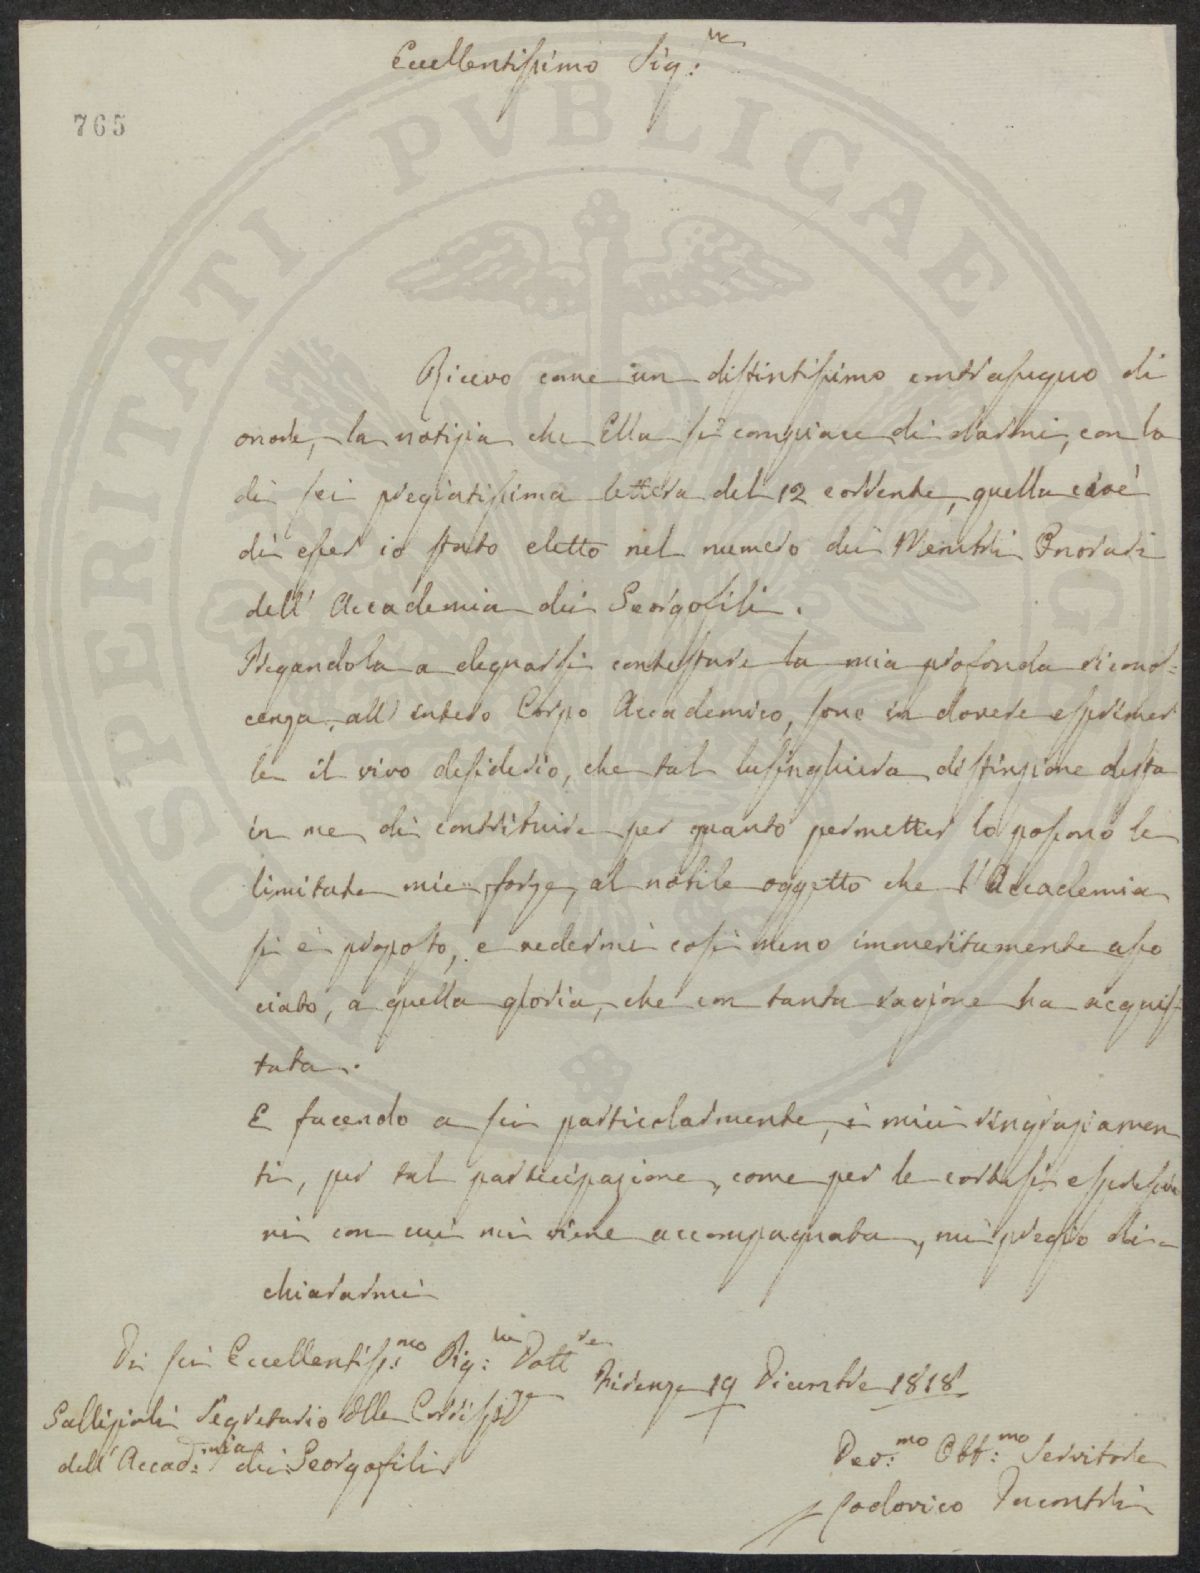 Eccellentissimo Sig:re
765
Ricevo come un distintissimo contrasegno di
onore, la notizia che Ella si compiace di darmi, con la
di lei pregiatissima lettera del 12 corrente, quella cioè
di esser io stato eletto nel numero dei Membri Onorari
dell' Accademia dei Georgofili.
Pregandola a degnarsi contestare la mia profonda ricono-
cenza, all' intero Corpo Accademico, sono in dovere esprimer
le il vivo desiderio, che tal lusinghiera distinzione desta
in me di contribuire per quanto permetter lo possono le
limitate mie forze, al nobile oggetto che l'Accademia
si è proposto, e vedermi così meno immeritamente asso
ciato, a quella gloria, che con tanta ragione ha acquis
tata.
E facendo a lei particolarmente, i miei ringraziamen
ti, per tal partecipazione, come per le cortesi espressio
ni con cui mi viene accompagnata, mi pregio di-
chiararmi
Di lei Eccellentiss:mo Sig: Dott
Gallizioli Segretario delle Corrisp:ze
dell' Accad:mia dei Georgofili
Firenze 19 Dicembre 1818
Dev:mo Obb:mo Servitore
Lodovico Incontri
PROSPERITATI PVBLICAE AVGENDAE